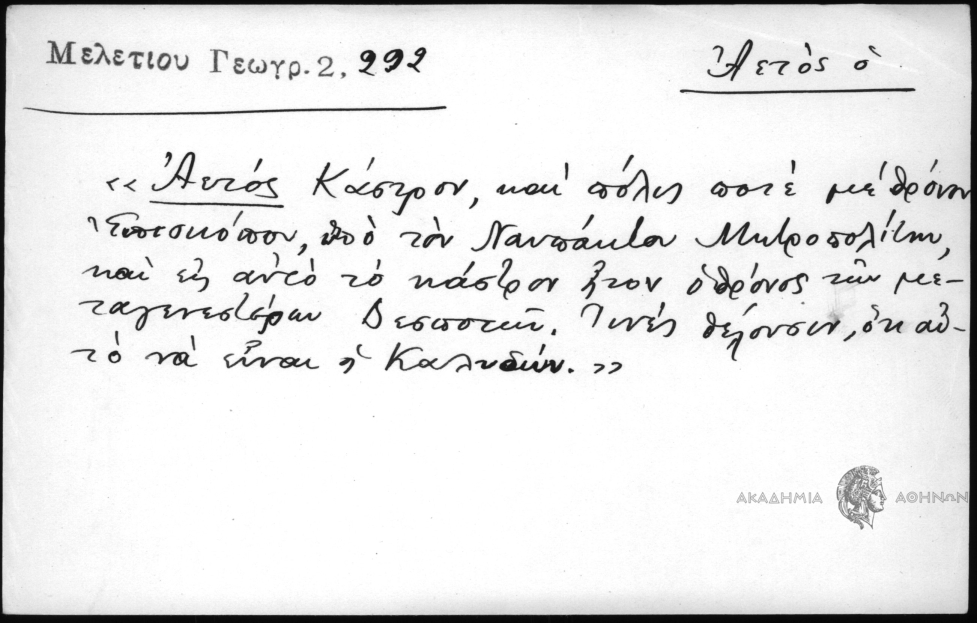 Μελετιου Γεωγρ. 2, 292
Ἀετὸς ὁ
«Ἀετός Κάστρον, καὶ πόλις ποτέ μέ θρόνον
Ἐπισκόπου, ὑπό τὸν Ναυπάκτου Μητροπολίτην,
καὶ εἰς αὐτό τό κάστρον ἦτον ὁ θρόνος τῶν με-
ταγενεστέρων Δεσποτῶν. Τινές θέλουσιν, ὅτι αὐ-
τό νά εἶναι ἡ Καλυδών.»
ΑΚΑΔΗΜΙΑ ΑΘΗΝΩΝ